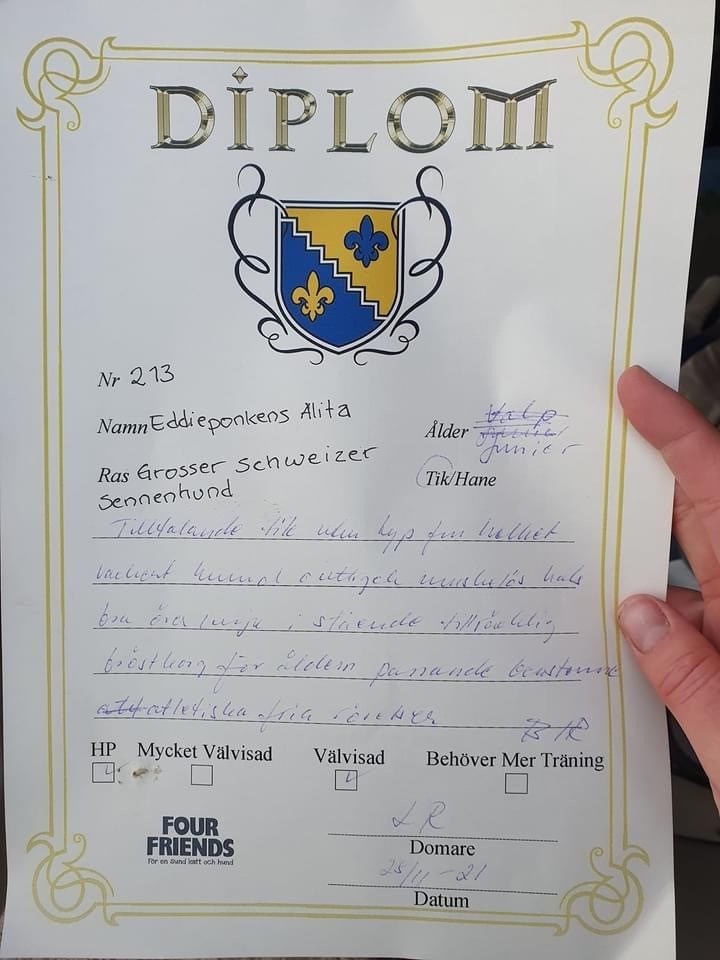 DIPLOM
Nr 213
Namn Eddieponkens Alita
Ålder Valp
junior
junior
Ras Grosser Schweizer
Sennenhund
Tik/Hane
Tilltalande tik utm typ fin helhet
vackert huvud uttryck muskulös hals
bra över linje i stående tillräcklig
bröstkorg för åldern passande benstomme
atletiska fria rörelser
HP
Mycket Välvisad
Välvisad
Behöver Mer Träning
FOUR
FRIENDS
För en sund katt och hund
LR
Domare
28/11-21
Datum